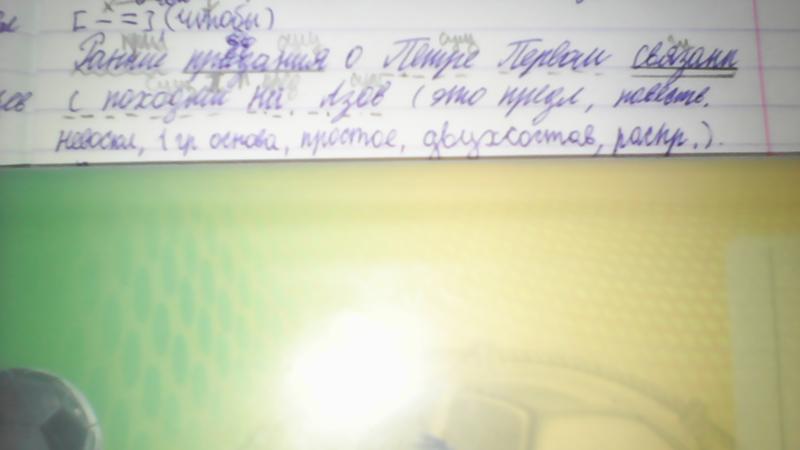 [ – = ] (чтобы)
Ранние предания о Петре Первом связаны
с походами на Азов (это предл, повеств.
невоскл, 1 гр основа, простое, двухсостав, распр.).